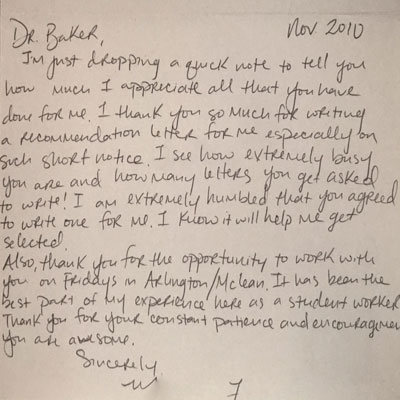 Dr. Baker, Nov 2010
I'm just dropping a quick note to tell you
how much I appreciate all that you have
done for me. I thank you so much for writing
a recommendation letter for me especially on
such short notice. I see how extremely busy
you are and how many letters you get asked
to write! I am extremely humbled that you agreed
to write one for me. I know it will help me get
selected.
Also, thank you for the opportunity to work with
you on Fridays in Arlington/Mclean. It has been the
best part of my experience here as a student worker
Thank you for your constant patience and encouragemen
you are awesome.
Sincerely